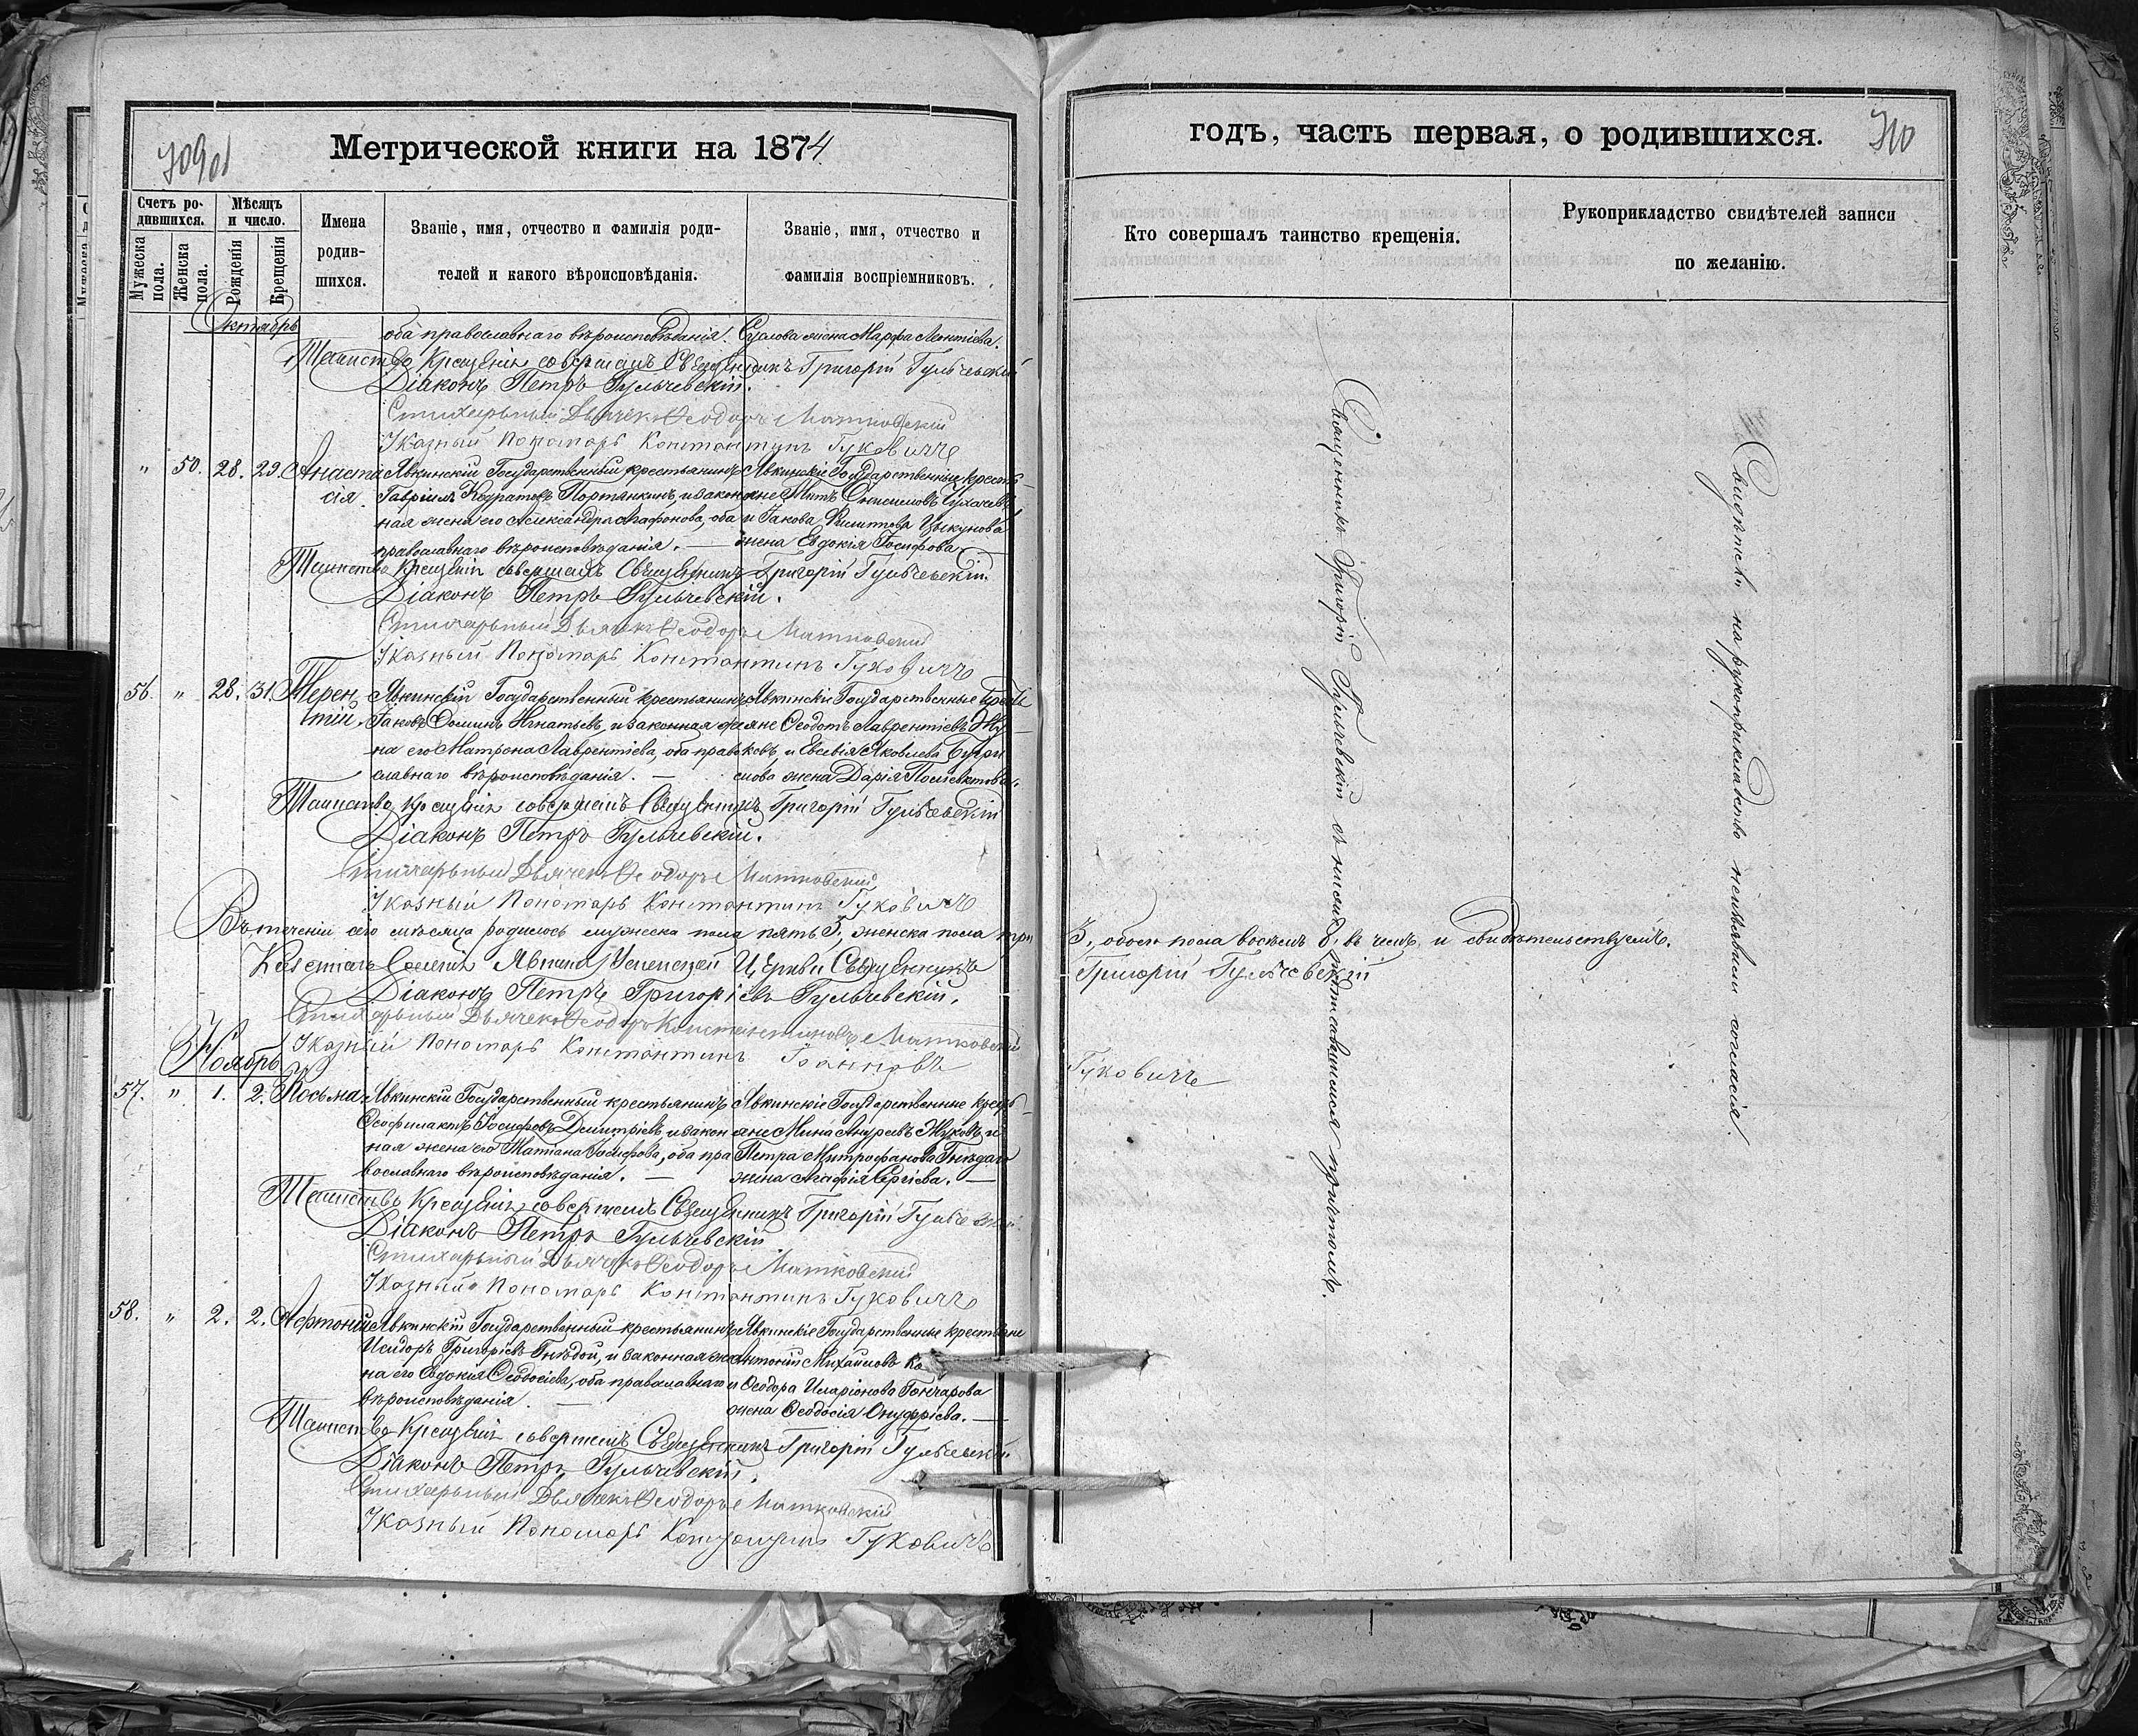 709 об
Метрической книги на 1874
Счетъ родившихся.
Мужеска пола.
Женска пола.
Мѣсяцъ и число.
Рожденія
Крещенія
Имена родившихся.
Званіе, имя, отчество и фамилія родителей и какого вѣроисповѣданія.
Званіе, имя, отчество и фамилія воспріемниковъ.
Октябрь
оба православнаго вѣроисповѣданія. жена Марфа Леонтіева.
Таинство Крещенія совершалъ Священникъ Григорій Гульчевскій
Діаконъ Петръ Гульчевскій.
Стихарьный Дьячекъ Ѳеодоръ Матковскій
Указный Пономарь Константинъ Гуковичъ
" 50. 28. 29. Анаста Явкинскій Государственный крестьянинъ Явкинскіе Государственные кресть
сія. Гавріилъ Кодратовъ Портянкинъ, и закон яне Митъ Онисимовъ
ная жена его Александра Агафонова, оба и Іакова Филиппова Цыкунова
православнаго вѣроисповѣданія. — жена Евдокія Іосифова.
Таинство Крещенія совершалъ Священникъ Григорій Гульчевскій.
Діаконъ Петръ Гульчевскій.
Стихарьный Дьячекъ Ѳеодоръ Матковскій
Указный Пономарь Константинъ Гуковичъ
56. " 28. 31. Терен Явкинскій Государственный крестьянинъ Явкинскіе Государственные кресть
тій. Іаковъ Ѳоминъ Игнатьевъ, и законная же яне Ѳеодотъ Лаврентіевъ Жу
на его Матрона Лаврентіева, оба право ковъ, и Евсевія Яковлева
славнаго вѣроисповѣданія. — жена Дарія Поліевктова.
Таинство Крещенія совершалъ Священникъ Григорій Гульчевскій
Діаконъ Петръ Гульчевскій.
Стихарьный Дьячекъ Ѳеодоръ Матковскій
Указный Пономарь Константинъ Гуковичъ
Въ теченіи сего мѣсяца родилось мужеска пола пять 5, женска пола три
Селенія Явкина Успенской Церкви Священникъ
Діаконъ Петръ Григоріевъ Гульчевскій.
Стихарьный Дьячекъ Ѳеодоръ Константиновъ Матковскій
Указный Пономарь Константинъ Іоанновъ
Ноябрь
57. " 1. 2. Косьма Явкинскій Государственный крестьянинъ Явкинскіе Государственные кресть
Ѳеофилактъ Іосифовъ Димитріевъ и закон яне Мина Андреевъ Жуковъ и
ная жена его Татіана Іосифова, оба пра Петра Митрофанова Гнѣдаго
вославнаго вѣроисповѣданія. — жена Агафія Сергіева. —
Таинство Крещенія совершалъ Священникъ Григорій Гульчевскій
Діаконъ Петръ Гульчевскій
Стихарьный Дьячекъ Ѳеодоръ Матковскій
Указный Пономарь Константинъ Гуковичъ
58. " 2. 2. Явкинскій Государственный крестьянинъ Явкинскіе Государственные крестьяне
Исидоръ Григоріевъ Гнѣдой, и законная же Антоній Михайловъ
на его Евдокія Ѳеодосіева, оба православнаго и Ѳеодора Иларіонова Гончарова
вѣроисповѣданія. — жена Ѳеодосія Онуфріева. —
Таинство Крещенія совершалъ Священникъ Григорій Гульчевскій
Діаконъ Петръ Гульчевскій.
Стихарьный Дьячекъ Ѳеодоръ Матковскій
Указный Пономарь Константинъ Гуковичъ
годъ, часть первая, о родившихся.
710
Кто совершалъ таинство крещенія.
Рукоприкладство свидѣтелей записи по желанію.
3, обоего пола восемь 8, въ чемъ и свидѣтельствуемъ.
Григорій Гульчевскій
Гуковичъ
Священникъ Григорій Гульчевскій съ нисподписавшимся причтомъ.
Свидѣтели на рукоприкладство неизъявили согласія.